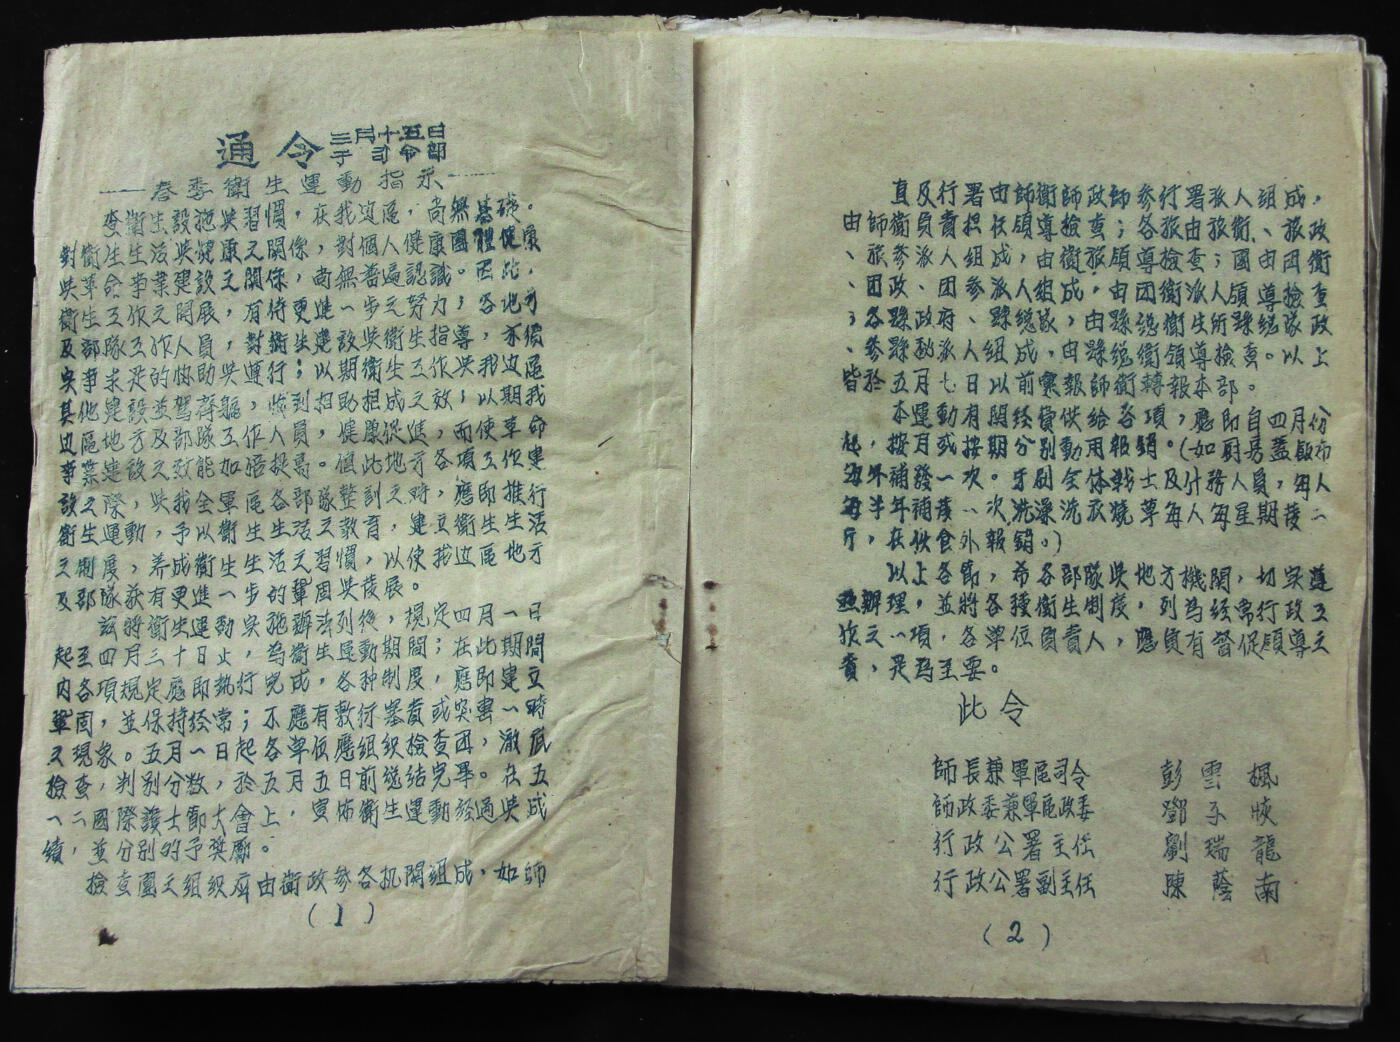 通令 三月十五日
于司令部
春季衛生運動指示
查衛生設施與習慣,在我边區,尚無基礎。
對衛生生活與健康之關係,對個人健康團體健康
與革命事業建設之關係,尚無普遍認識。因此,
衛生工作之開展,有待更進一步之努力;各地方
及部隊工作人員,對衛生建設與衛生指導,亦須
实事求是的协助與遵行;以期衛生工作與我边區
其他建設並駕齊驅,收到相助相成之效;以期我
边區地方及部隊工作人員,健康促進,而使革命
事業建設之效能加倍提高。值此地方各項工作建
設之際,與我全軍區各部隊整訓之時,應即推行
衛生運動,予以衛生生活之教育,建立衛生生活
之制度,养成衛生生活之習慣,以使我边區地方
及部隊获有更進一步的鞏固與發展。
茲將衛生運動实施辦法列後,規定四月一日
起至四月三十日止,為衛生運動期間;在此期間
内各項規定應即執行完成,各种制度,應即建立
鞏固,並保持经常;不應有敷衍塞責或突击一時
之現象。五月一日起各單位應組织檢查团,澈底
檢查,判别分数,於五月五日前総結完畢。在五
一二國際護士節大會上,宣佈衛生運動经過與成
績,並分别的予奬勵。
檢查團之组织應由衛政参各机関组成,如師
(1)
直及行署由師衛師政師参行署派人组成,
由師衛負責担任領導檢查;各旅由旅衛、旅政
、旅参派人组成,由衛旅領導檢查;團由团衛
、团政、团参派人组成,由团衛派人領導檢查
;各縣政府、縣総隊,由縣総衛生所縣総隊政
、参縣勤派人组成,由縣総衛領導檢查。以上
皆於五月七日以前彙報師衛轉報本部。
本運動有関经費供给各項,應即自四月份
起,按月或按期分别動用報銷。(如厨房蓋飯布
每半年補發一次。牙刷全体戰士及什務人員,每人
每半年補發一次洗澡洗衣燒草每人每星期發二
斤,在伙食外報銷。)
以上各節,希各部隊與地方機関,切实遵
照辦理,並將各種衛生制度,列為经常行政工
作之一項,各單位負責人,應負有督促領導之
責,是為至要。
此令
師長兼軍區司令 彭雪楓
師政委兼軍區政委 鄧子恢
行政公署主任 劉瑞龍
行政公署副主任 陳蔭南
(2)